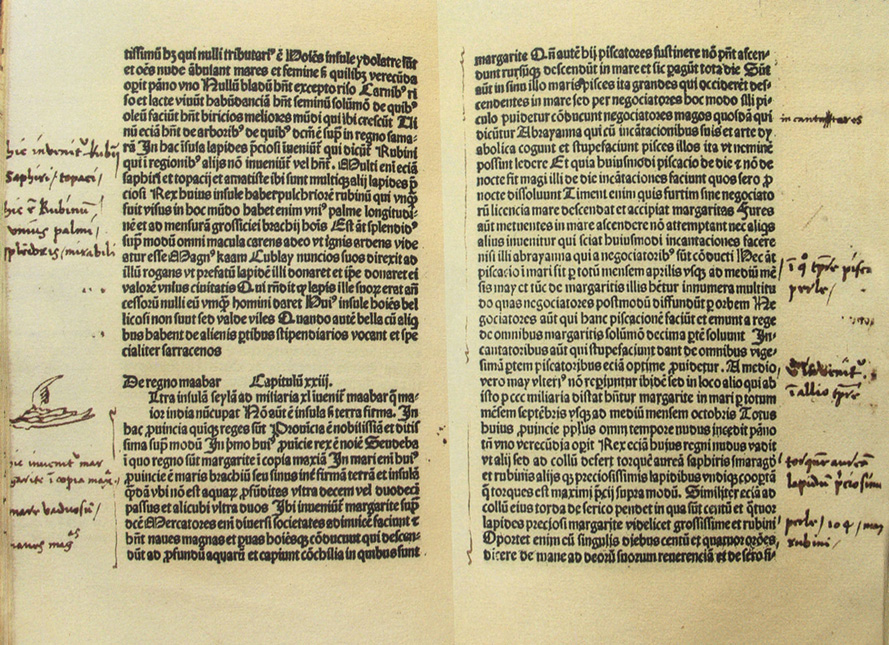 tissimū hʒ qui nulli tributariꝰ ē Hoīes insule ydolatre sūt
et oēs nude ābulant mares et femine s̄ quilibꝫ verecūda
oꝑit pāno vno Nullū bladū hn̄t excepto riso Carnibꝰ ri
so et lacte viuūt habūdanciā hn̄t seminū solūmō de quibꝰ
oleū faciūt hn̄t biricios meliores mūdi qui ibi crescūt Ui
nū eciā hn̄t de arboribꝰ de quibꝰ dcm̄ ē suꝑ in regno sama-
rā In hac īsula lapides p̄ciosi īueniūt̄ qui dicūt̄ Rubini
qui ī regionibꝰ alijs nō īueniūt̄ vel hn̄t. Multi em̄ eciā
saphiri et topacij et amatiste ibi sunt multiqꝫ alij lapides p̄
ciosi Rex huius insule habet pulchriorē rubinū qui vnqꝫ
fuit visus in hoc mūdo habet enim vniꝰ palme longitudi-
nē et ad mensurā grossiciei brachij hoīs Est āt splendidꝰ
suꝑ modū omni macula carens adeo vt ignis ardens vide
atur esse Magnꝰ kaam Cublay nuncios suos direxit ad
illū rogans vt prefatū lapidē illi donaret et ip̄e donaret ei
valorē vnius ciuitatis Qui rn̄dit ꝙ lapis ille suoꝝ erat an̄
cessorū nulli eū vmqꝫ homini daret Huiꝰ insule hoīes bel
licosi non sunt sed valde viles Quando autē bella cū aliqͥ
bus habent de alienis ꝑtibus stipendiarios vocant et spe
cialiter sarracenos
De regno maabar Capitulū xxiij.
Ultra insulā seylā ad miliaria xl īuenit̄ maabar q̄ ma-
ior india nūcupat̄ Nō aūt ē insula s̄ terra firma. In
hac ꝓuincia quīqꝫ reges sūt Prouīcia ē nobilissīa et ditis
sima suꝑ modū In p̄mo huiꝰ ꝓuicie rex ē noīe Seudeba
ī quo regno sūt margarite ī copia maxīa In mari em̄ huiꝰ
ꝓuincie ē maris brachiū seu sinus int̄ firmā terrā et insulā
quādā vbi nō est aquaꝝ ꝓfūditas vltra decem vel duodecī
passus et alicubi vltra duos Ibi īueniūt̄ margarite suꝑ
dcē Mercatores em̄ diuersi societates adīuicē faciūt et
hn̄t naues magnas et ꝑuas hoīesqꝫ cōducunt qui descen-
dūt ad ꝓfundū aquarū et capiunt cōchilia in quibus sunt
hic invenitͬ Rubinj
Saphiri / topacij
hic ē Rubinū
vnius palmi /
hic inuenitͬ mar
garite ī copia max.
mare vadosum /
naues magᵃˢ
margarite Qn̄ autē hij piscatores sustinere nō pn̄t ascen-
dunt rursūqꝫ descendūt in mare et sic ꝑagūt tota die Sūt
aūt in sinu illo maris pisces ita grandes qui occiderēt des-
cendentes in mare sed per negociatores hoc modo illi pi-
culo ꝓuidetur cōducunt negociatores magos quosdā qui
dicūtur Abrayanna qui cū incātacionibus suis et arte dy
abolica cogunt et stupefaciunt pisces illos ita vt neminē
possint ledere Et quia huiusmodi piscacio de die et nō de
nocte fit magi illi de die incātaciones faciunt quas sero ꝓ
nocte dissoluunt Timent enim quis furtim sine negociato
rū licencia mare descendat et accipiat margaritas Fures
aūt metuentes in mare ascendere nō attemptant nec aliqͥs
alius inuenitur qui sciat huiusmodi incantaciones facere
nisi illi abrayanna qui a negociatoribꝰ sūt cōducti Hec āt
piscacio ī mari fit ꝑ totū mensem aprilis vsqꝫ ad mediū mē
sis may et tūc de margaritis illis hētur innumera multitu
do quas negociatores postmodū diffundūt ꝑ orbem Ne
gociatores aūt qui hanc piscacionē faciūt et emunt a rege
de omnibus margaritis solūmō decima ꝑtē soluūt In-
cantatoribus aūt qui stupefaciunt dant de omnibus vige-
simā ꝑtem piscatoribus eciā optime ꝓuidetur. A medio
vero may vlteriꝰ nō reꝑiuntur ibidē sed in loco alio qui ab
isto ꝑ ccc miliaria distat hn̄tur margarite in mari ꝑ totum
mēsem septēbris vsqꝫ ad mediū mensem octobris Totus
huius ꝓuincie ppl̄us omni tempore nudus incedit pāno
tn̄ vno verecūdia oꝑit Rex eciā huius regni nudus vadit
vt alij sed ad collū defert torquē aureā saphiris smaragdꝭ
et rubinis alijs qꝫ preciosissimis lapidibus vndiqꝫ cooꝑtā
q̄ torques est maximi p̄cij supra modū. Similiter eciā ad
collū eius torda de serico pendet in qua sūt centū et q̄tuor
lapides preciosi margarite videlicet grossissime et rubini
Oportet enim eū singulis diebus centū et quatuor orōes
dicere de mane ad deorū suorum reuerenciā et de sero si-
incantatores
ī qͦ tꝑre pisca
perle /
ī allio tꝑre
torquem aureā
lapidū p̄ciosum
perle / 104 / may
rubini /